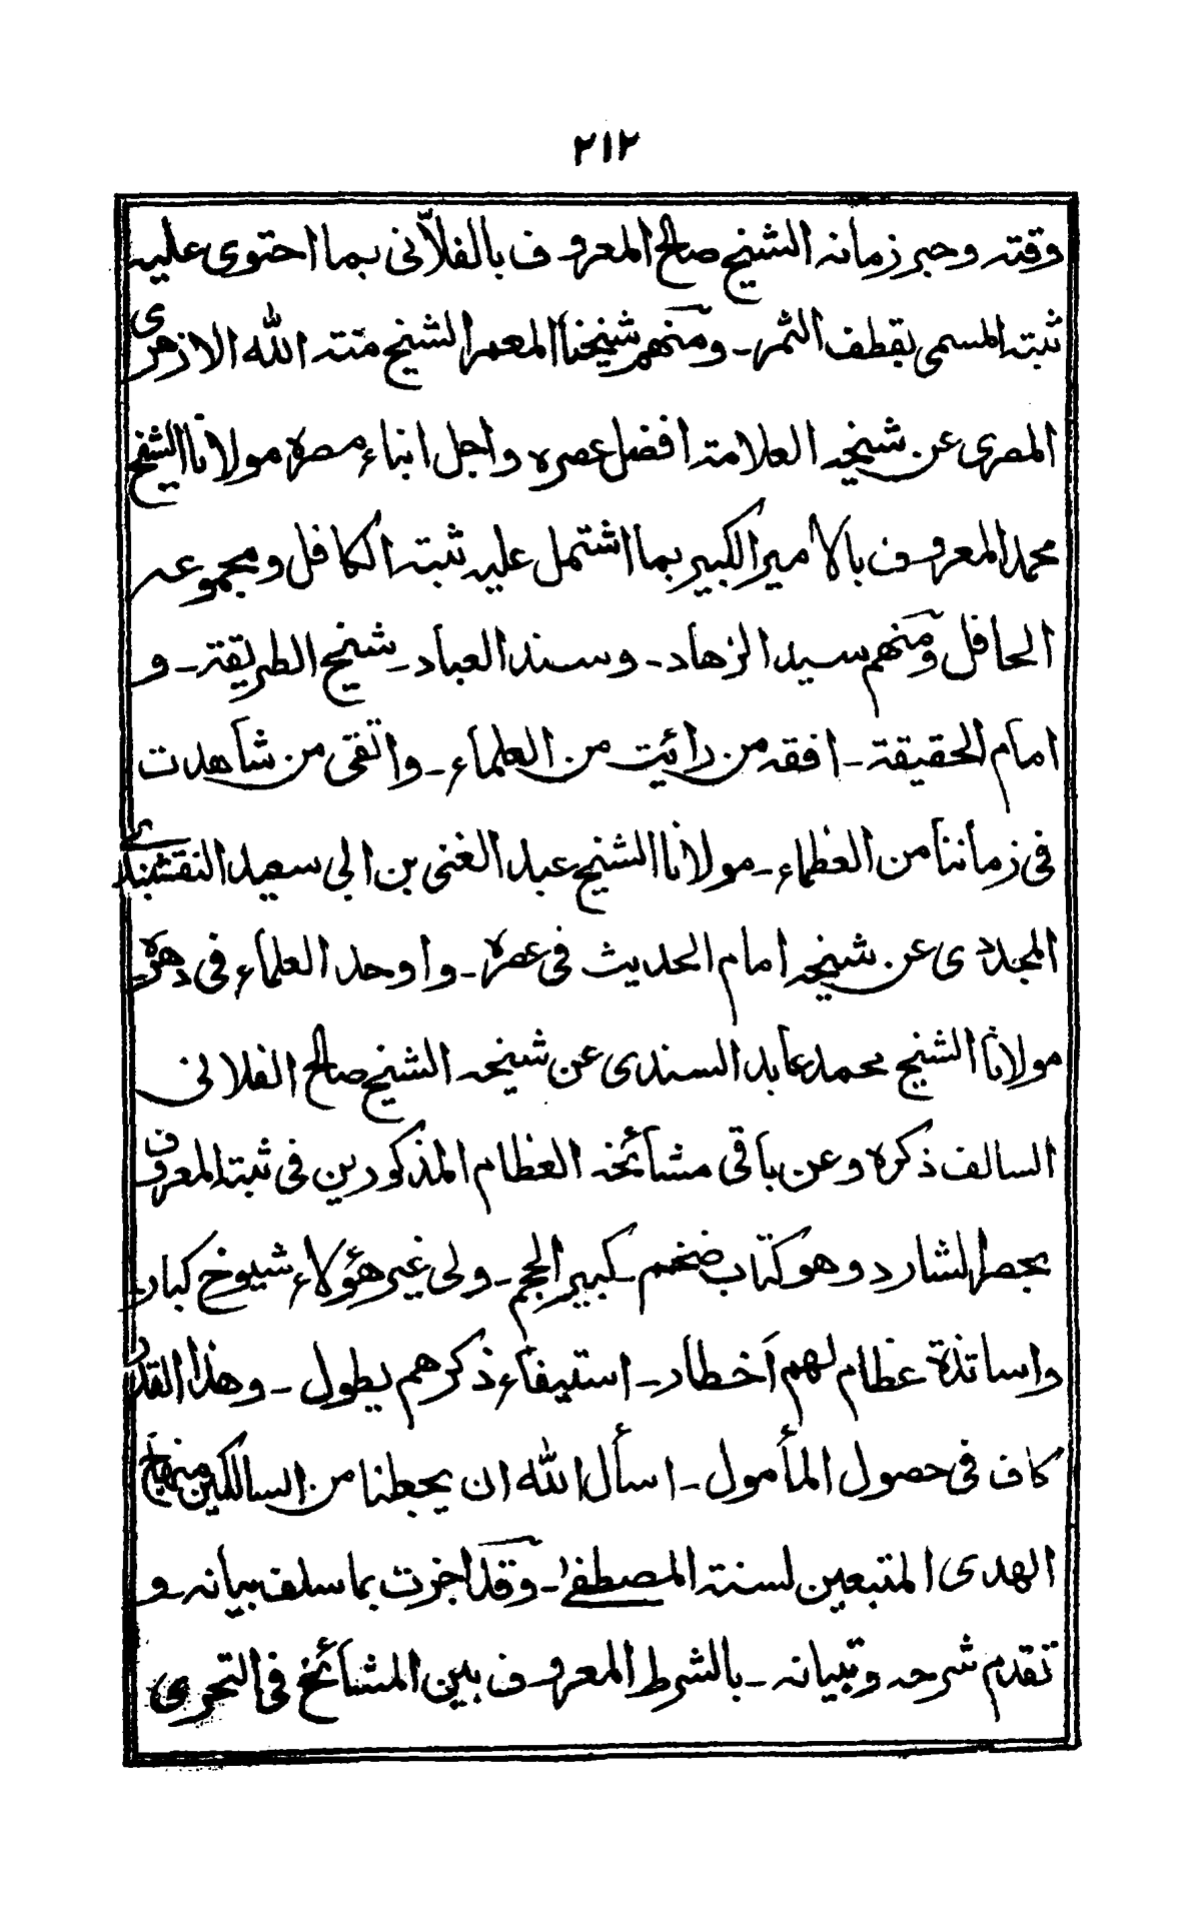 ٢١٢
وقته وحبر زمانه الشيخ صالح المعروف بالفلاّنى بما احتوى عليه
ثبته المسمى بقطف الثمر۔ ومنهم شيخنا المعمر الشيخ منة الله الازهرى
المصرى عن شيخه العلامة افضل عصره واجل ابناء مصره مولانا الشيخ
محمد المعروف بالأمير الكبير بما اشتمل عليه ثبته الكافل ومجموعه
الحافل ومنهم سيد الزهاد۔ وسند العباد۔ شيخ الطريقة۔ و
امام الحقيقة۔ افقه من رائيت من العلماء۔ واتقى من شاهدت
فى زماننا من العظماء۔ مولانا الشيخ عبد الغنى بن ابى سعيد النقشبندى
المجددى عن شيخه امام الحديث فى عصره۔ واوحد العلماء فى دهره
مولانا الشيخ محمد عابد السندى عن شيخه الشيخ صالح الفلانى
السالف ذكره وعن باقى مشائخه العظام المذكورين فى ثبته المعروف
بحصر الشارد وهو كتاب ضخم كبير الحجم۔ ولى غير هؤلاء شيوخ كبار
واساتذة عظام لهم أخطار۔ استيفاء ذكرهم يطول۔ وهذا القدر
كاف فى حصول المأمول۔ اسأل الله ان يجعلنا من السالكين منهاج
الهدى المتبعين لسنة المصطفىٰ۔ وقد اجزت بما سلف بيانه۔ و
تقدم شرحه وتبيانه۔ بالشرط المعروف بين المشائخ فى التحرى